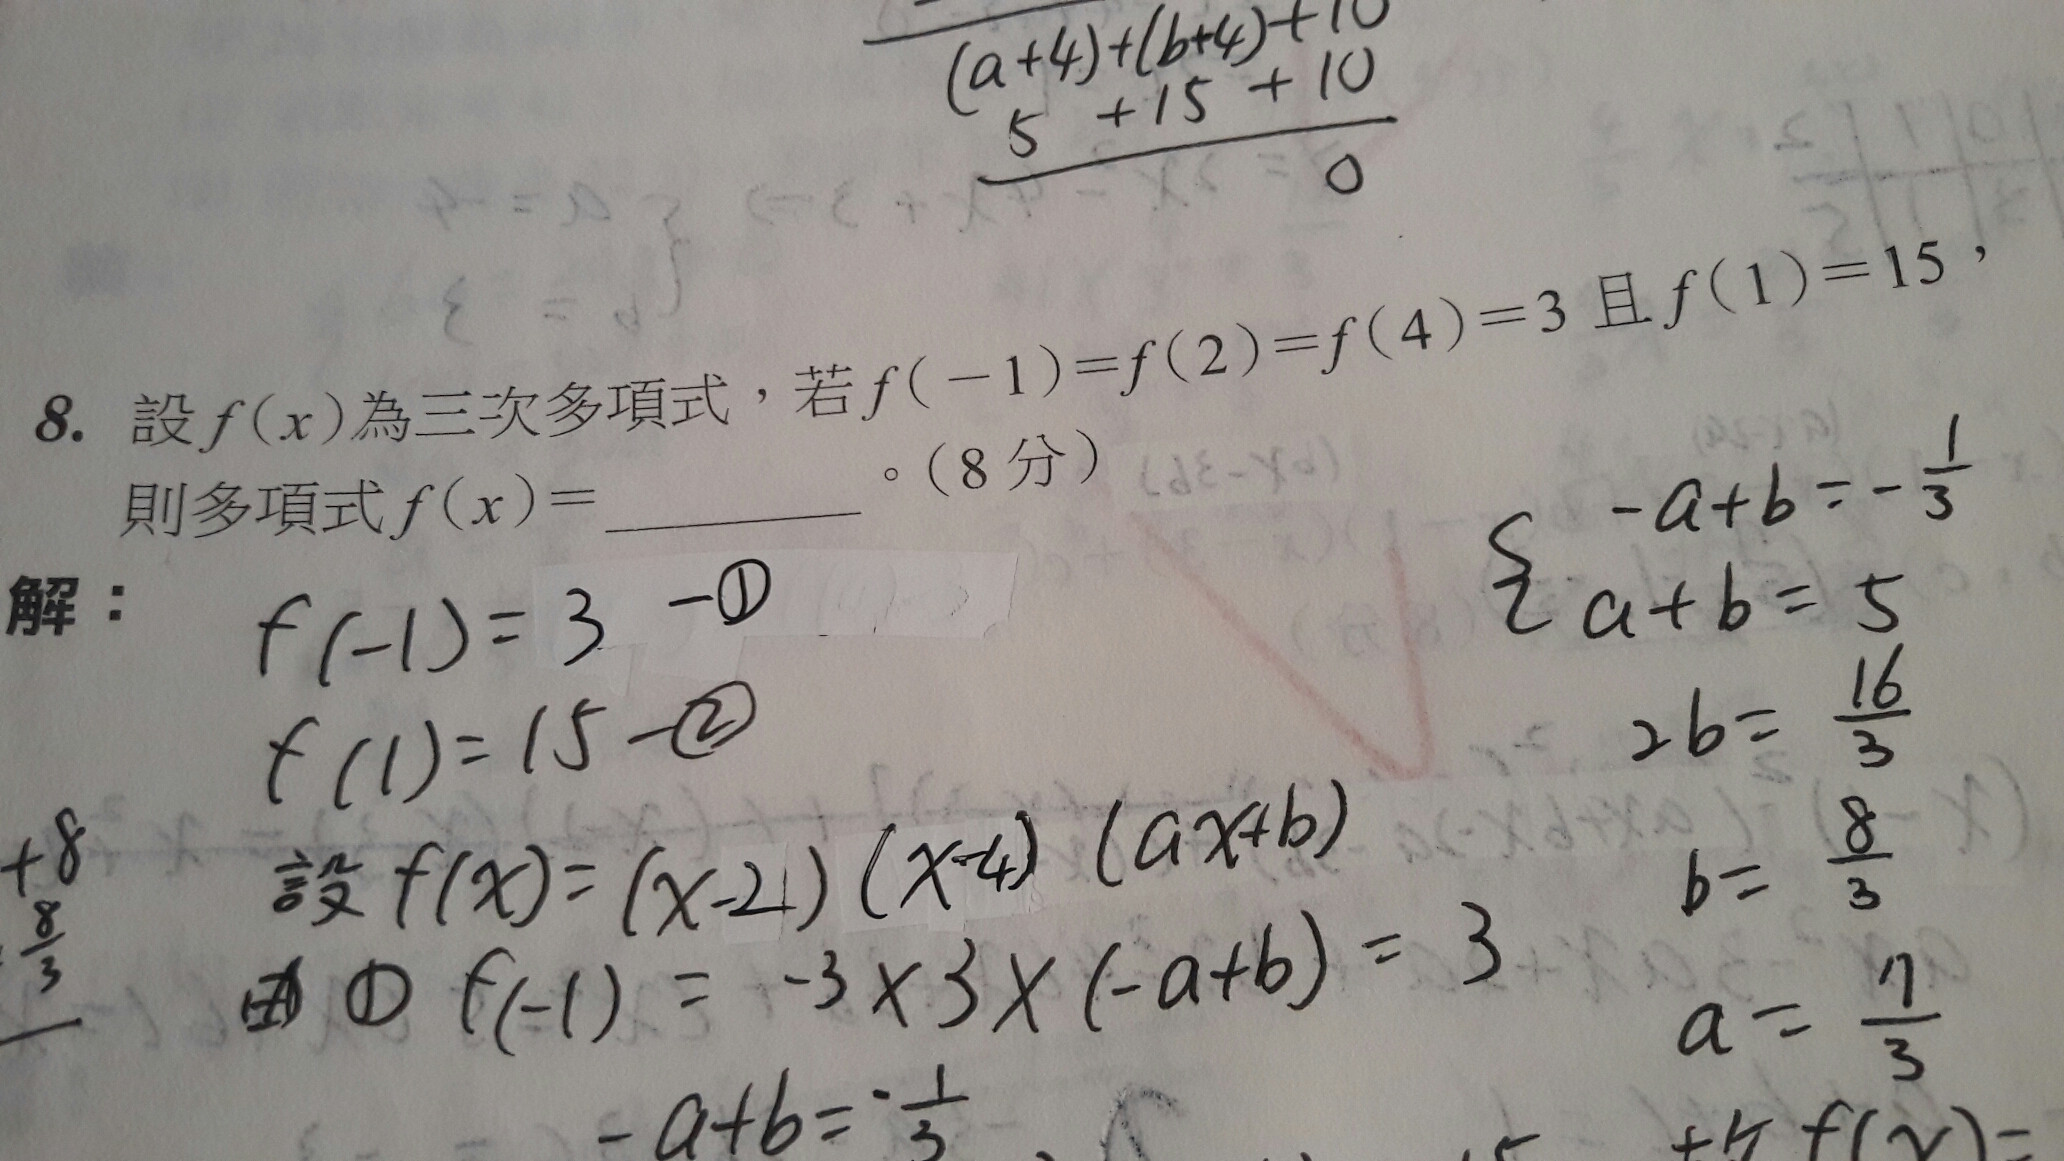 (a+4)+(b+4)+10
5 +15 +10
0
8. 設f(x)為三次多項式，若f(-1)=f(2)=f(4)=3且f(1)=15，
則多項式f(x)=______。(8分)
解：
f(-1)=3 -①
f(1)=15 -②
設 f(x)=(x-2)(x-4)(ax+b)
由① f(-1) = -3×3×(-a+b) = 3
-a+b=-1/3
{ -a+b=-1/3
a+b=5
2b=16/3
b=8/3
a=7/3
f(x)=
+8
8/3